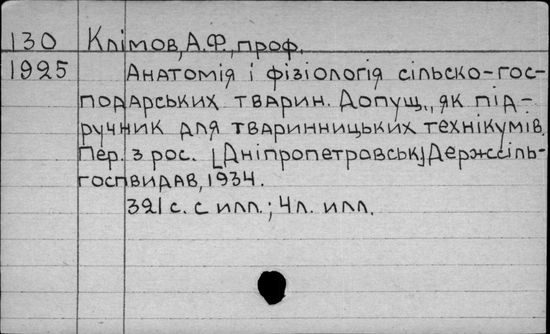 130 Клімов, А.Ф., проф.
1925 Анатомія і фізіологія сільско-гос-
подарських тварин. Допущ., як під-
ручник для тваринницьких технікумів.
Пер. з рос. [Дніпропетровськ] Держсіль-
госпвидав, 1934.
321 с. с илл.; 4л. илл.